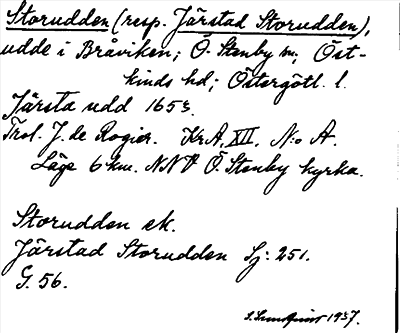 Storudden (resp. Järstad Storudden),
udde i Bråviken; Ö. Stenby sn; Öst-
kinds hd; Östergötl. l.
Järsta udd 1653.
Trol. J. de Rogier. KrA, XII, N:o A.
Läge 6 km. NNV Ö. Stenby kyrka.
Storudden ek.
Järstad Storudden Sj: 251.
G. 56.
1937.